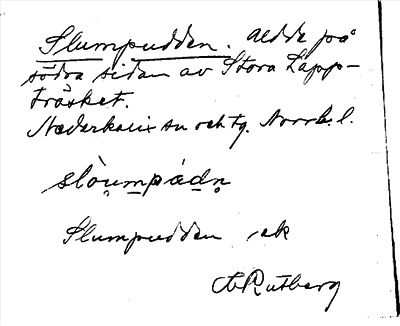 Slumpudden. udde på
södra sidan av Stora Lapp-
träsket.
Nederkalix sn och tg. Norrb. l.
slòu̥m̲pád̲n̥
Slumpudden, -ek
A Rutberg